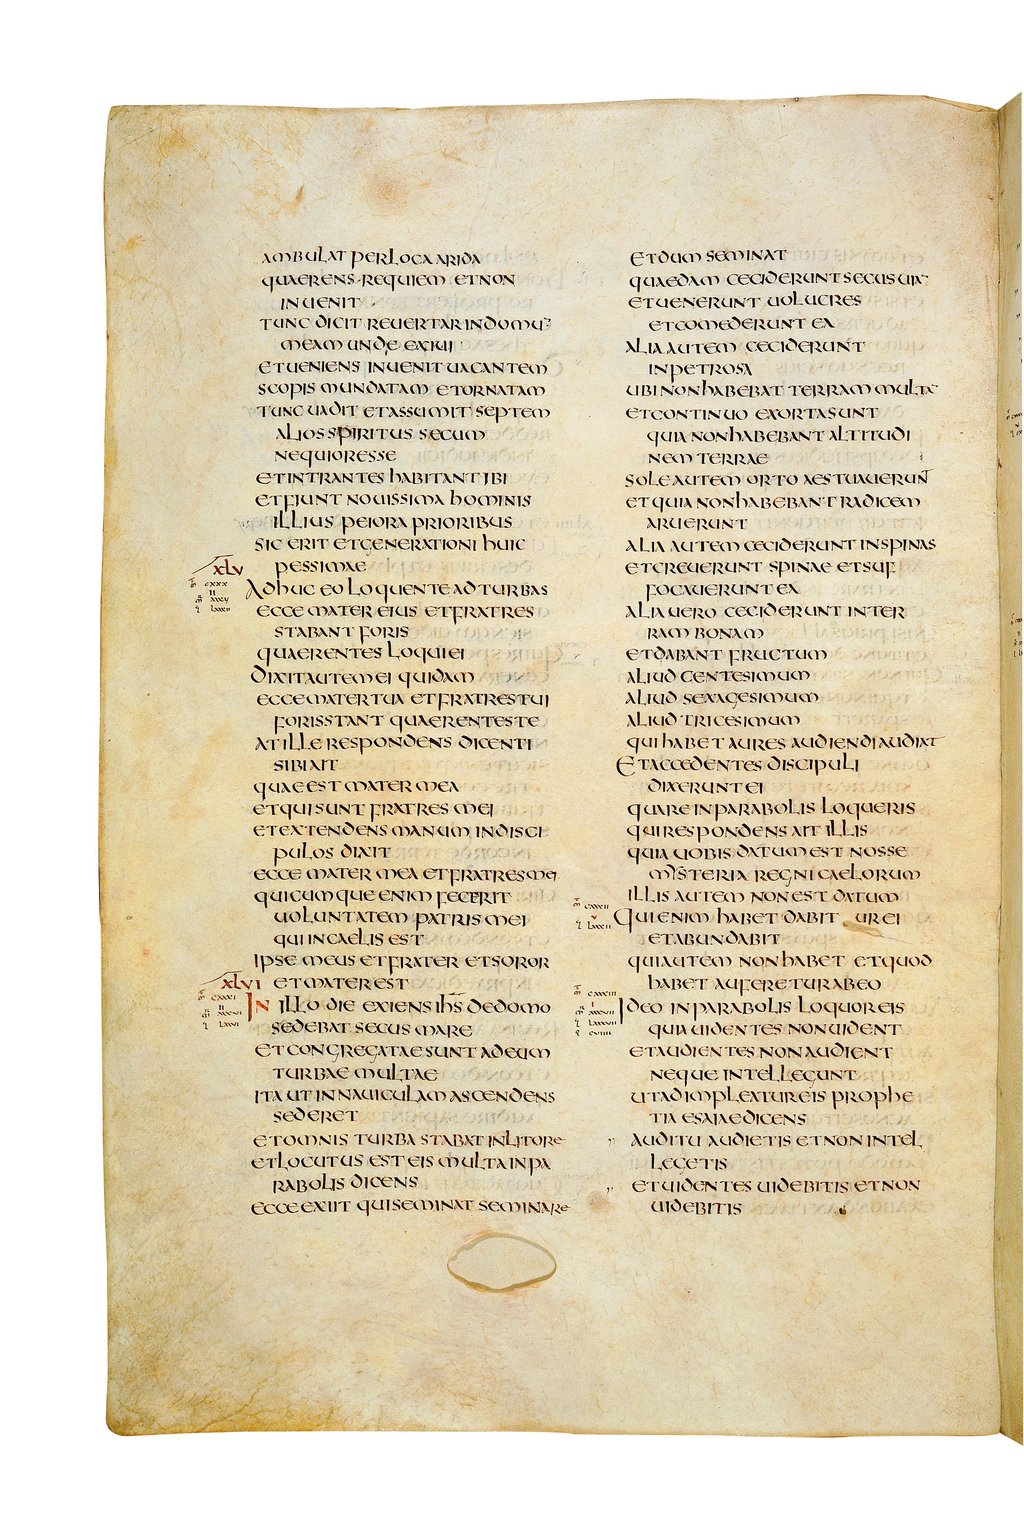 AMBULAT PER LOCA ARIDA
QUAERENS REQUIEM ET NON
INUENIT
TUNC DICIT REUERTAR IN DOMŪ
MEAM UNDE EXIUI
ET UENIENS INUENIT UACANTEM
SCOPIS MUNDATAM ET ORNATAM
TUNC UADIT ET ASSUMIT SEPTEM
ALIOS SPIRITUS SECUM
NEQUIORES SE
ET INTRANTES HABITANT IBI
ET FIUNT NOUISSIMA HOMINIS
ILLIUS PEIORA PRIORIBUS
SIC ERIT ET GENERATIONI HUIC
PESSIMAE
XLV
ADHUC EO LOQUENTE AD TURBAS
ECCE MATER EIUS ET FRATRES
STABANT FORIS
QUAERENTES LOQUI EI
DIXIT AUTEM EI QUIDAM
ECCE MATER TUA ET FRATRES TUI
FORIS STANT QUAERENTES TE
AT ILLE RESPONDENS DICENTI
SIBI AIT
QUAE EST MATER MEA
ET QUI SUNT FRATRES MEI
ET EXTENDENS MANUM IN DISCI
PULOS DIXIT
ECCE MATER MEA ET FRATRES MEI
QUICUMQUE ENIM FECERIT
UOLUNTATEM PATRIS MEI
QUI IN CAELIS EST
IPSE MEUS ET FRATER ET SOROR
XLVI ET MATER EST
IN ILLO DIE EXIENS IHS DE DOMO
SEDEBAT SECUS MARE
ET CONGREGATAE SUNT AD EUM
TURBAE MULTAE
ITA UT IN NAUICULAM ASCENDENS
SEDERET
ET OMNIS TURBA STABAT IN LITORE
ET LOCUTUS EST EIS MULTA IN PA
RABOLIS DICENS
ECCE EXIIT QUI SEMINAT SEMINARE
ET DUM SEMINAT
QUAEDAM CECIDERUNT SECUS UIĀ
ET UENERUNT UOLUCRES
ET COMEDERUNT EA
ALIA AUTEM CECIDERUNT
IN PETROSA
UBI NON HABEBAT TERRAM MULTĀ
ET CONTINUO EXORTA SUNT
QUIA NON HABEBANT ALTITUDI
NEM TERRAE
SOLE AUTEM ORTO AESTUAUERUNT
ET QUIA NON HABEBANT RADICEM
ARUERUNT
ALIA AUTEM CECIDERUNT IN SPINAS
ET CREUERUNT SPINAE ET SUF
FOCAUERUNT EA
ALIA UERO CECIDERUNT IN TER
RAM BONAM
ET DABANT FRUCTUM
ALIUD CENTESIMUM
ALIUD SEXAGESIMUM
ALIUD TRICESIMUM
QUI HABET AURES AUDIENDI AUDIAT
ET ACCEDENTES DISCIPULI
DIXERUNT EI
QUARE IN PARABOLIS LOQUERIS
QUI RESPONDENS AIT ILLIS
QUIA UOBIS DATUM EST NOSSE
MYSTERIA REGNI CAELORUM
ILLIS AUTEM NON EST DATUM
QUI ENIM HABET DABIT UR EI
ET ABUNDABIT
QUI AUTEM NON HABET ET QUOD
HABET AUFERETUR AB EO
IDEO IN PARABOLIS LOQUOR EIS
QUIA UIDENTES NON UIDENT
ET AUDIENTES NON AUDIENT
NEQUE INTELLEGUNT
UT ADIMPLEATUR EIS PROPHE
TIA ESAIAE DICENS
AUDITU AUDIETIS ET NON INTEL
LEGETIS
ET UIDENTES UIDEBITIS ET NON
UIDEBITIS